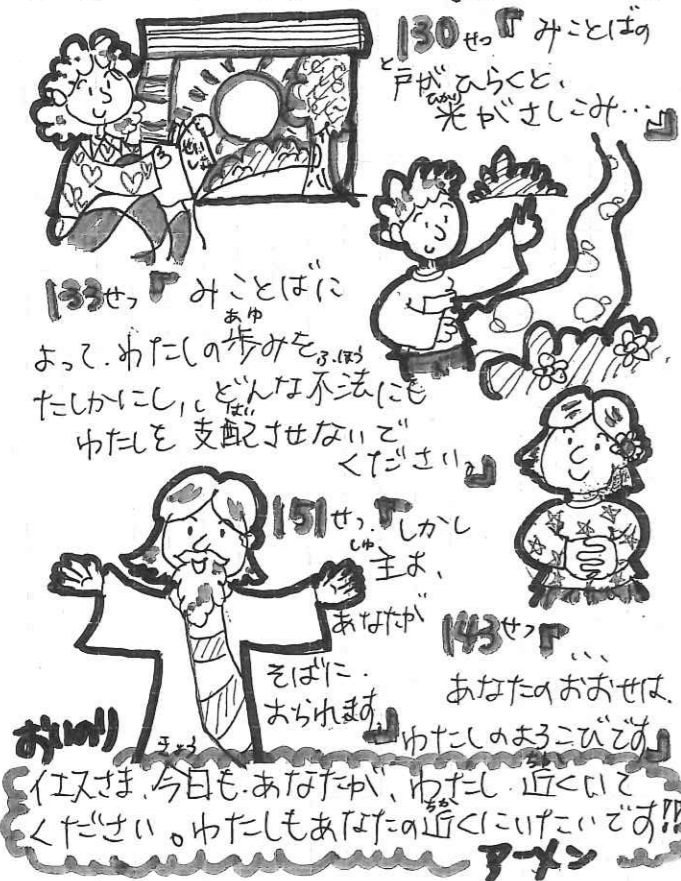 130せつ『みことばの
戸がひらくと、
光がさしこみ…』
133せつ『みことばに
よって、わたしの歩みを
たしかにし、どんな不法にも
わたしを支配させないで
ください。』
151せつ.『しかし
主よ、
あなたが
そばに.
おられます』
143せつ『…
あなたのおおせは、
わたしのよろこびです』
おいのり
イエスさま、今日も、あなたが、わたし 近くにいて
ください。わたしもあなたの近くにいたいです!!
アーメン